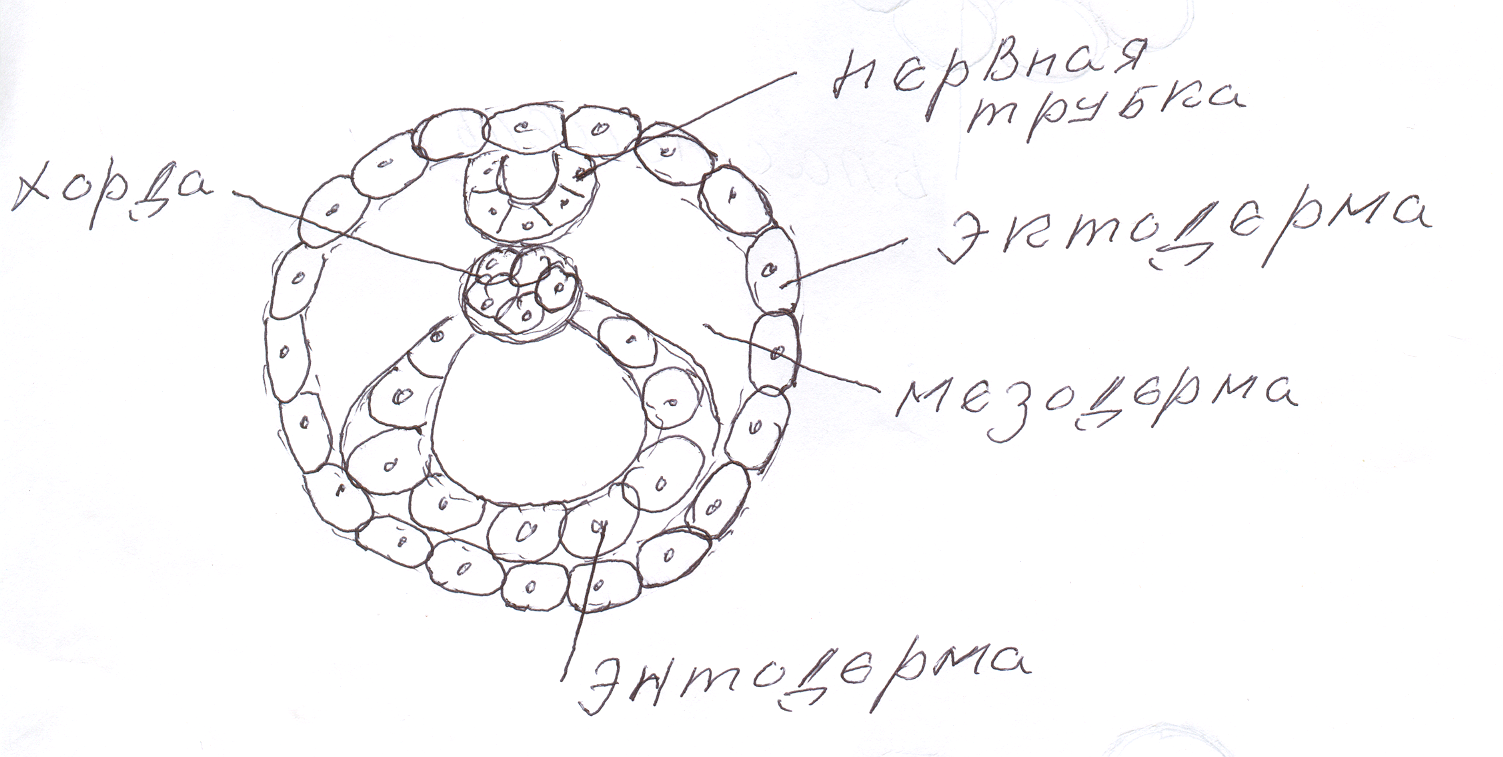 нервная
трубка
хорда
эктодерма
мезодерма
энтодерма